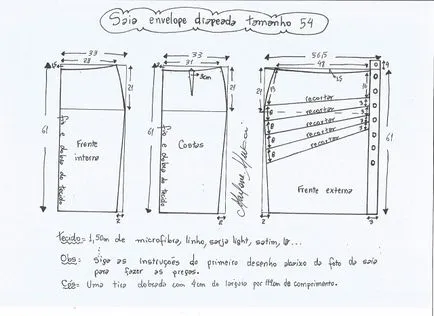 Saia envelope drapeada tamanho 54
33
28
61
21
Frente
interna
fio e dobra do tecido
2
33
31
9cm
61
21
Costas
fio e dobra do tecido
2
Marlene Mukai
56,5
48
4
1,5
15
21
61
recortar
recortar
recortar
recortar
recortar
8
8
8
8
3
3
3
Frente externa
2
3
Tecido = 1,50m de microfibra, linho, sarja light, cetim, ...
Obs = Siga as instruções do primeiro desenho abaixo da foto da saia
para fazer as pregas.
Cós = Uma tira dobrada com 4cm de largura por 114cm de comprimento.